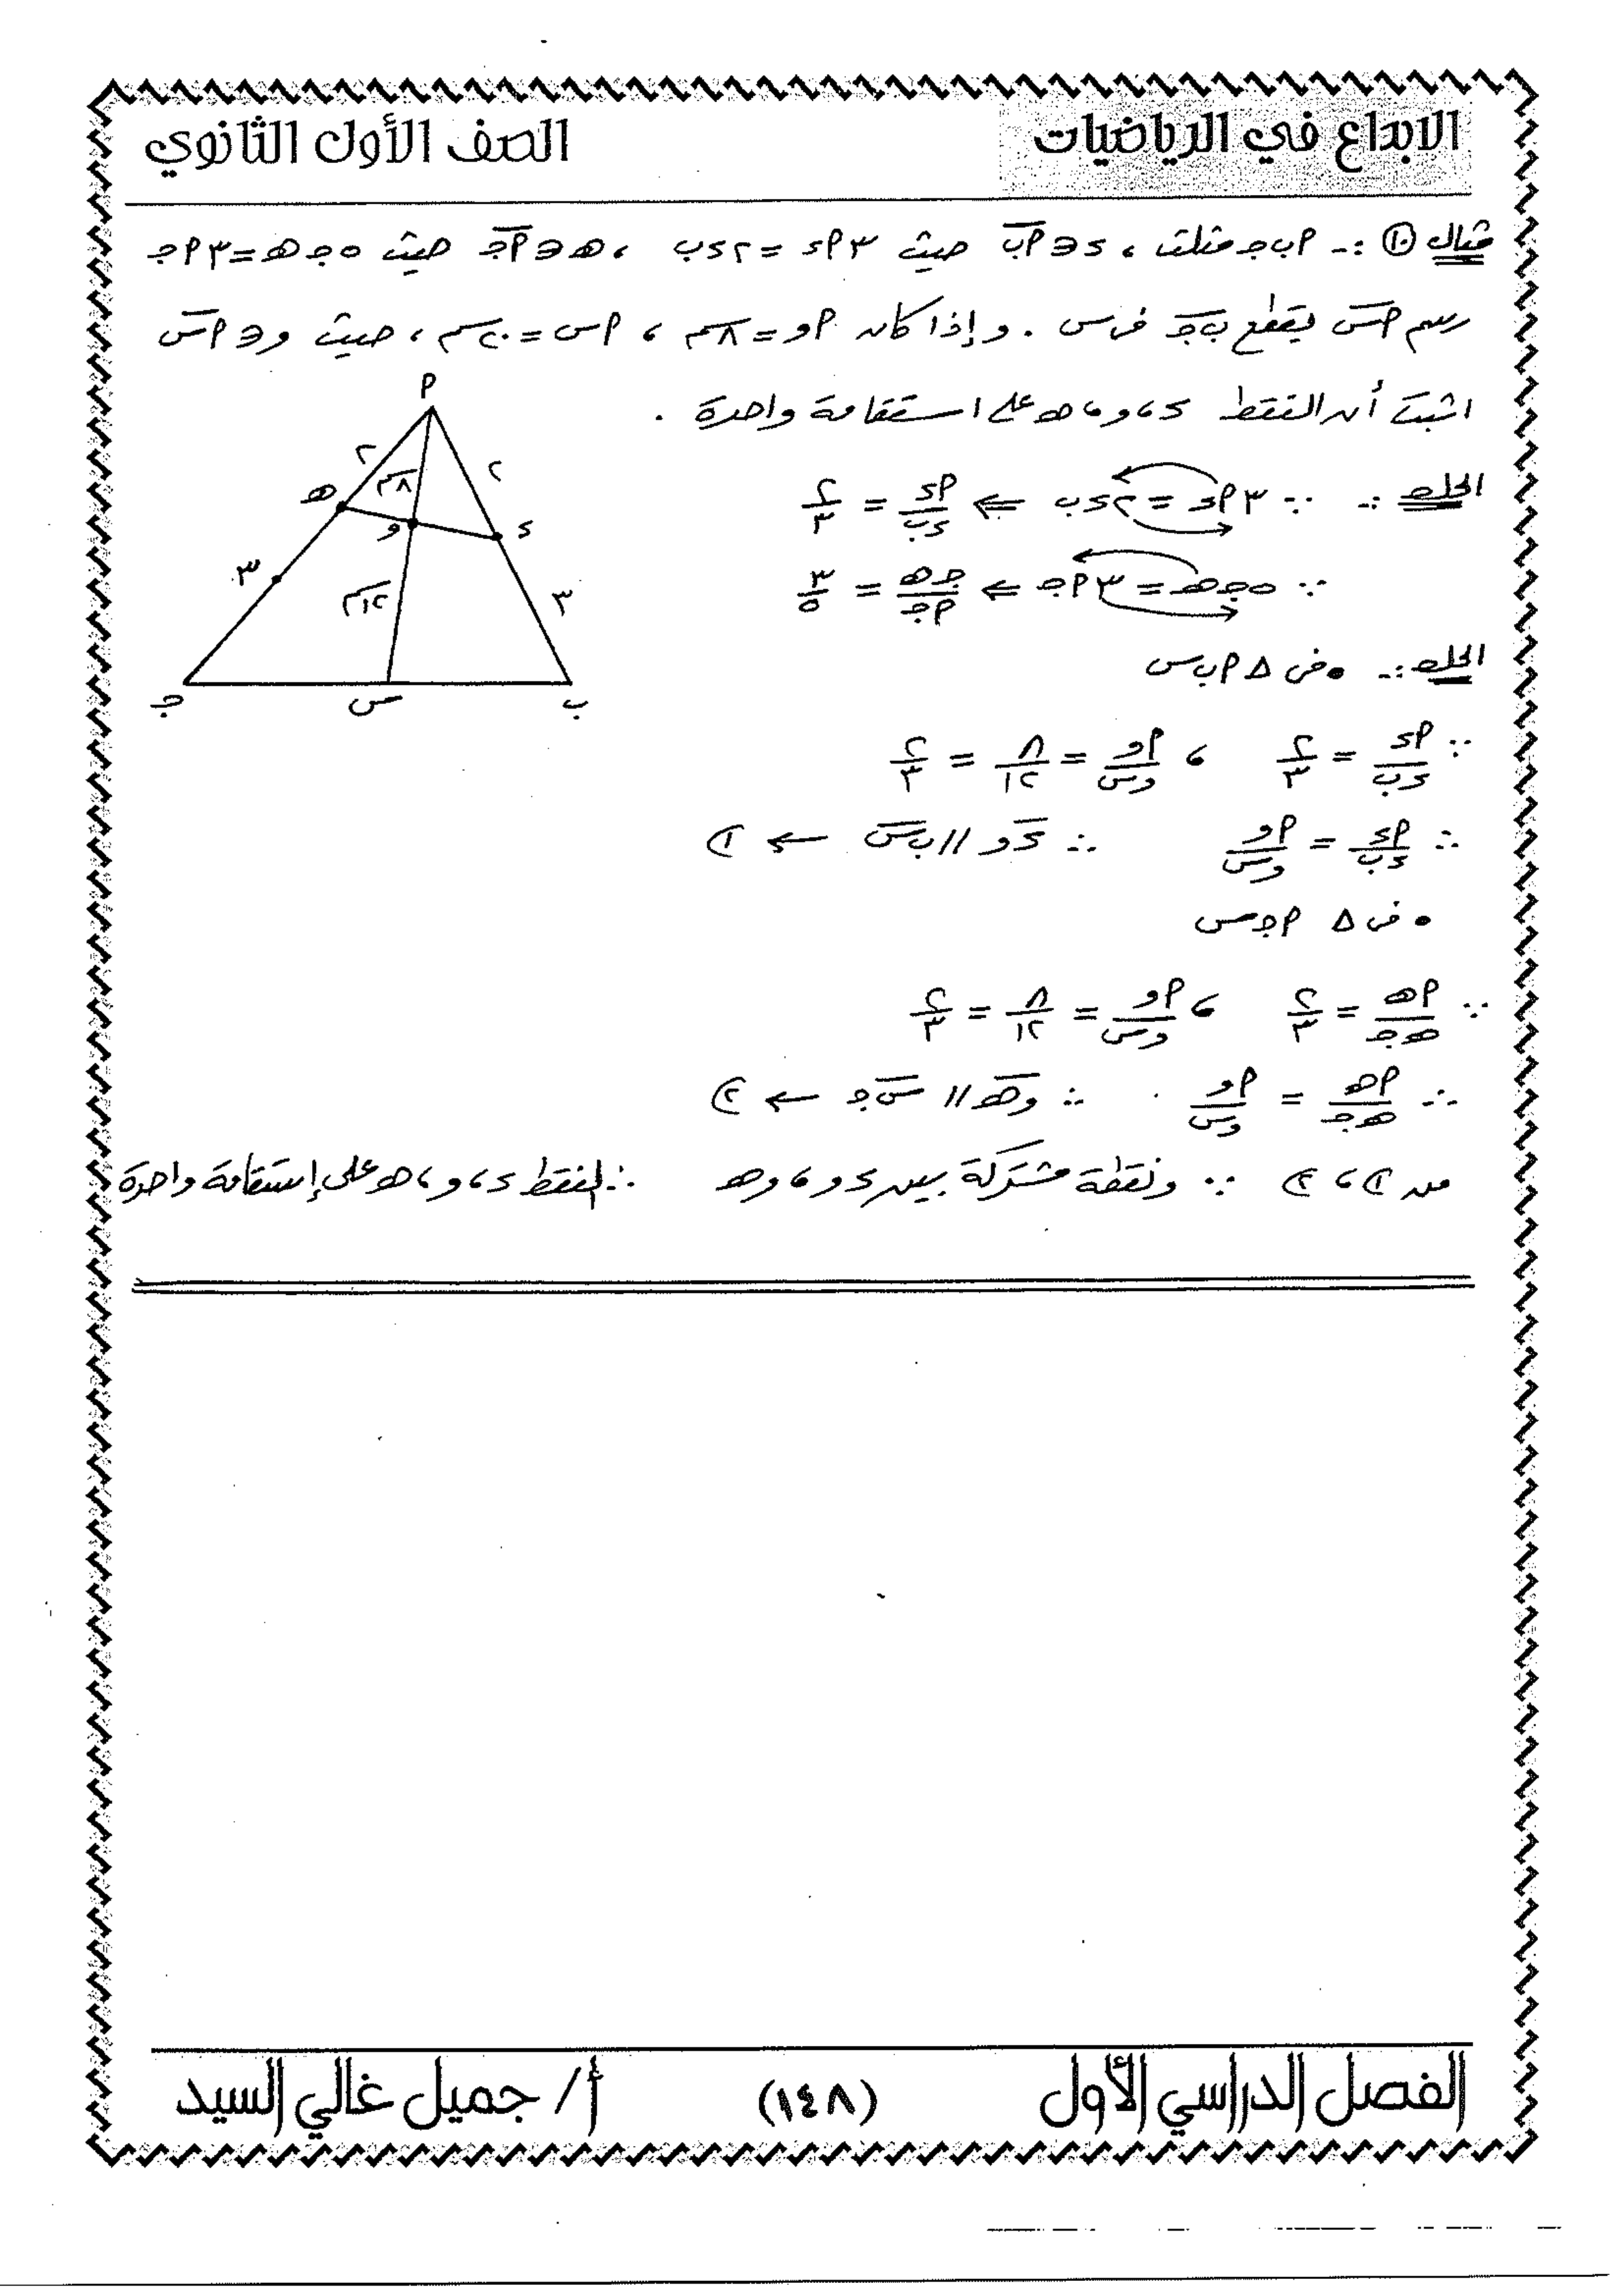 الابداع في الرياضيات
الصف الأول الثانوي
مثال (١٠) :- ٩ب جـ مثلث ، ء ∈ ٩ب حيث ٣ ٩ء = ٢ ء ب ، هـ ∈ ٩جـ حيث ٥ جـ هـ = ٣ ٩جـ
رسم ٩س يقطع ب جـ فى س . وإذا كان ٩و = ٨ سم ، ٩س = ٢٠ سم ، حيث و ∈ ٩س
اثبت أن النقط ء ، و ، هـ على استقامة واحدة .
٩
٢
٢
هـ
٨ سم
و
ء
٣
١٢ سم
٣
جـ
س
ب
الحل :- ∵ ٣ ٩ء = ٢ ء ب ⇐ ٩ء/ء ب = ٢/٣
∵ ٥ جـ هـ = ٣ ٩جـ ⇐ جـ هـ/٩جـ = ٣/٥
الحل :- • فى △ ٩ب س
∵ ٩ء/ء ب = ٢/٣ ، ٩و/وس = ٨/١٢ = ٢/٣
∴ ٩ء/ء ب = ٩و/وس ∴ ء و // ب س ← (١
• فى △ ٩جـ س
∵ ٩هـ/هـ جـ = ٢/٣ ، ٩و/وس = ٨/١٢ = ٢/٣
∴ ٩هـ/هـ جـ = ٩و/وس ∴ و هـ // س جـ ← (٢
من (١ ، (٢ ∵ و نقطة مشتركة بين ء و ، و هـ ∴ النقط ء ، و ، هـ على إستقامة واحدة
الفصل الدراسي الأول
(١٤٨)
أ/ جميل غالي السيد